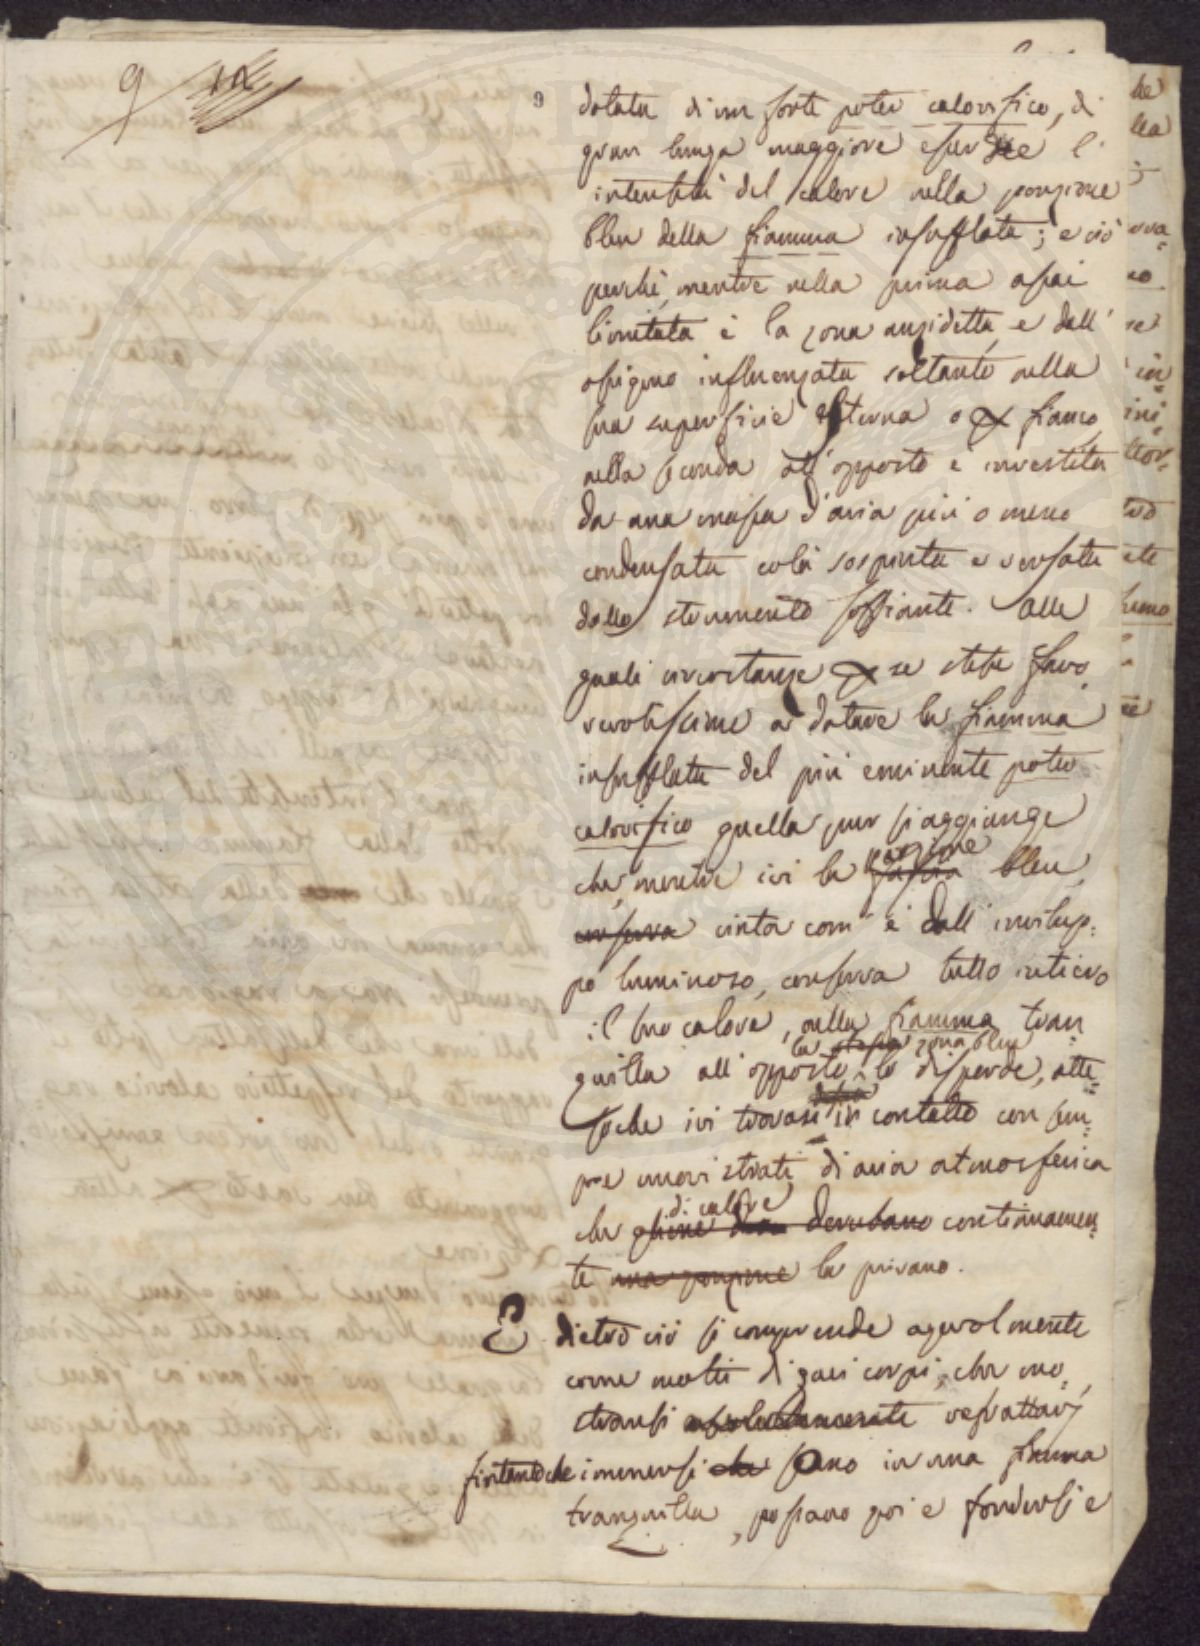 9
9
dotata di un forte poter calorifico, di
gran lunga maggiore essendo l'
intensità del calore nella porzione
bleu della fiamma insufflata; e ciò
perchè, mentre nella prima assai
limitata è la zona anzidetta, e dall'
ossigeno influenzata soltanto nella
sua superficie esterna o fianco,
nella seconda all'opposto è investita
da una massa d'aria più o meno
condensata colà sospinta e versata
dallo strumento soffiante. Alle
quali circostanze per se stesse favo,
revolissime a dotare la fiamma
insufflata del più eminente poter
calorifico quella pur si aggiunge
che, mentre ivi la fascia bleu,
porzione
conserva cinta com'è dall'invilup:
po luminoso, conserva tutto intiero
il suo calore, nella fiamma tran
quilla all'opposto lo disperde, atte=
la stessa zona bleu
sochè ivi trovasi in contatto con sem=
pre nuovi strati di aria atmosferica
che derubano continuamen=
di calore
te una porzione la privano.
E dietro ciò si comprende agevolmente
come molti di quei corpi, che mo=
stransi assolutamente refrattarj
fintantochè immersi che sono in una fiamma
tranquilla, possano poi e fondersi e